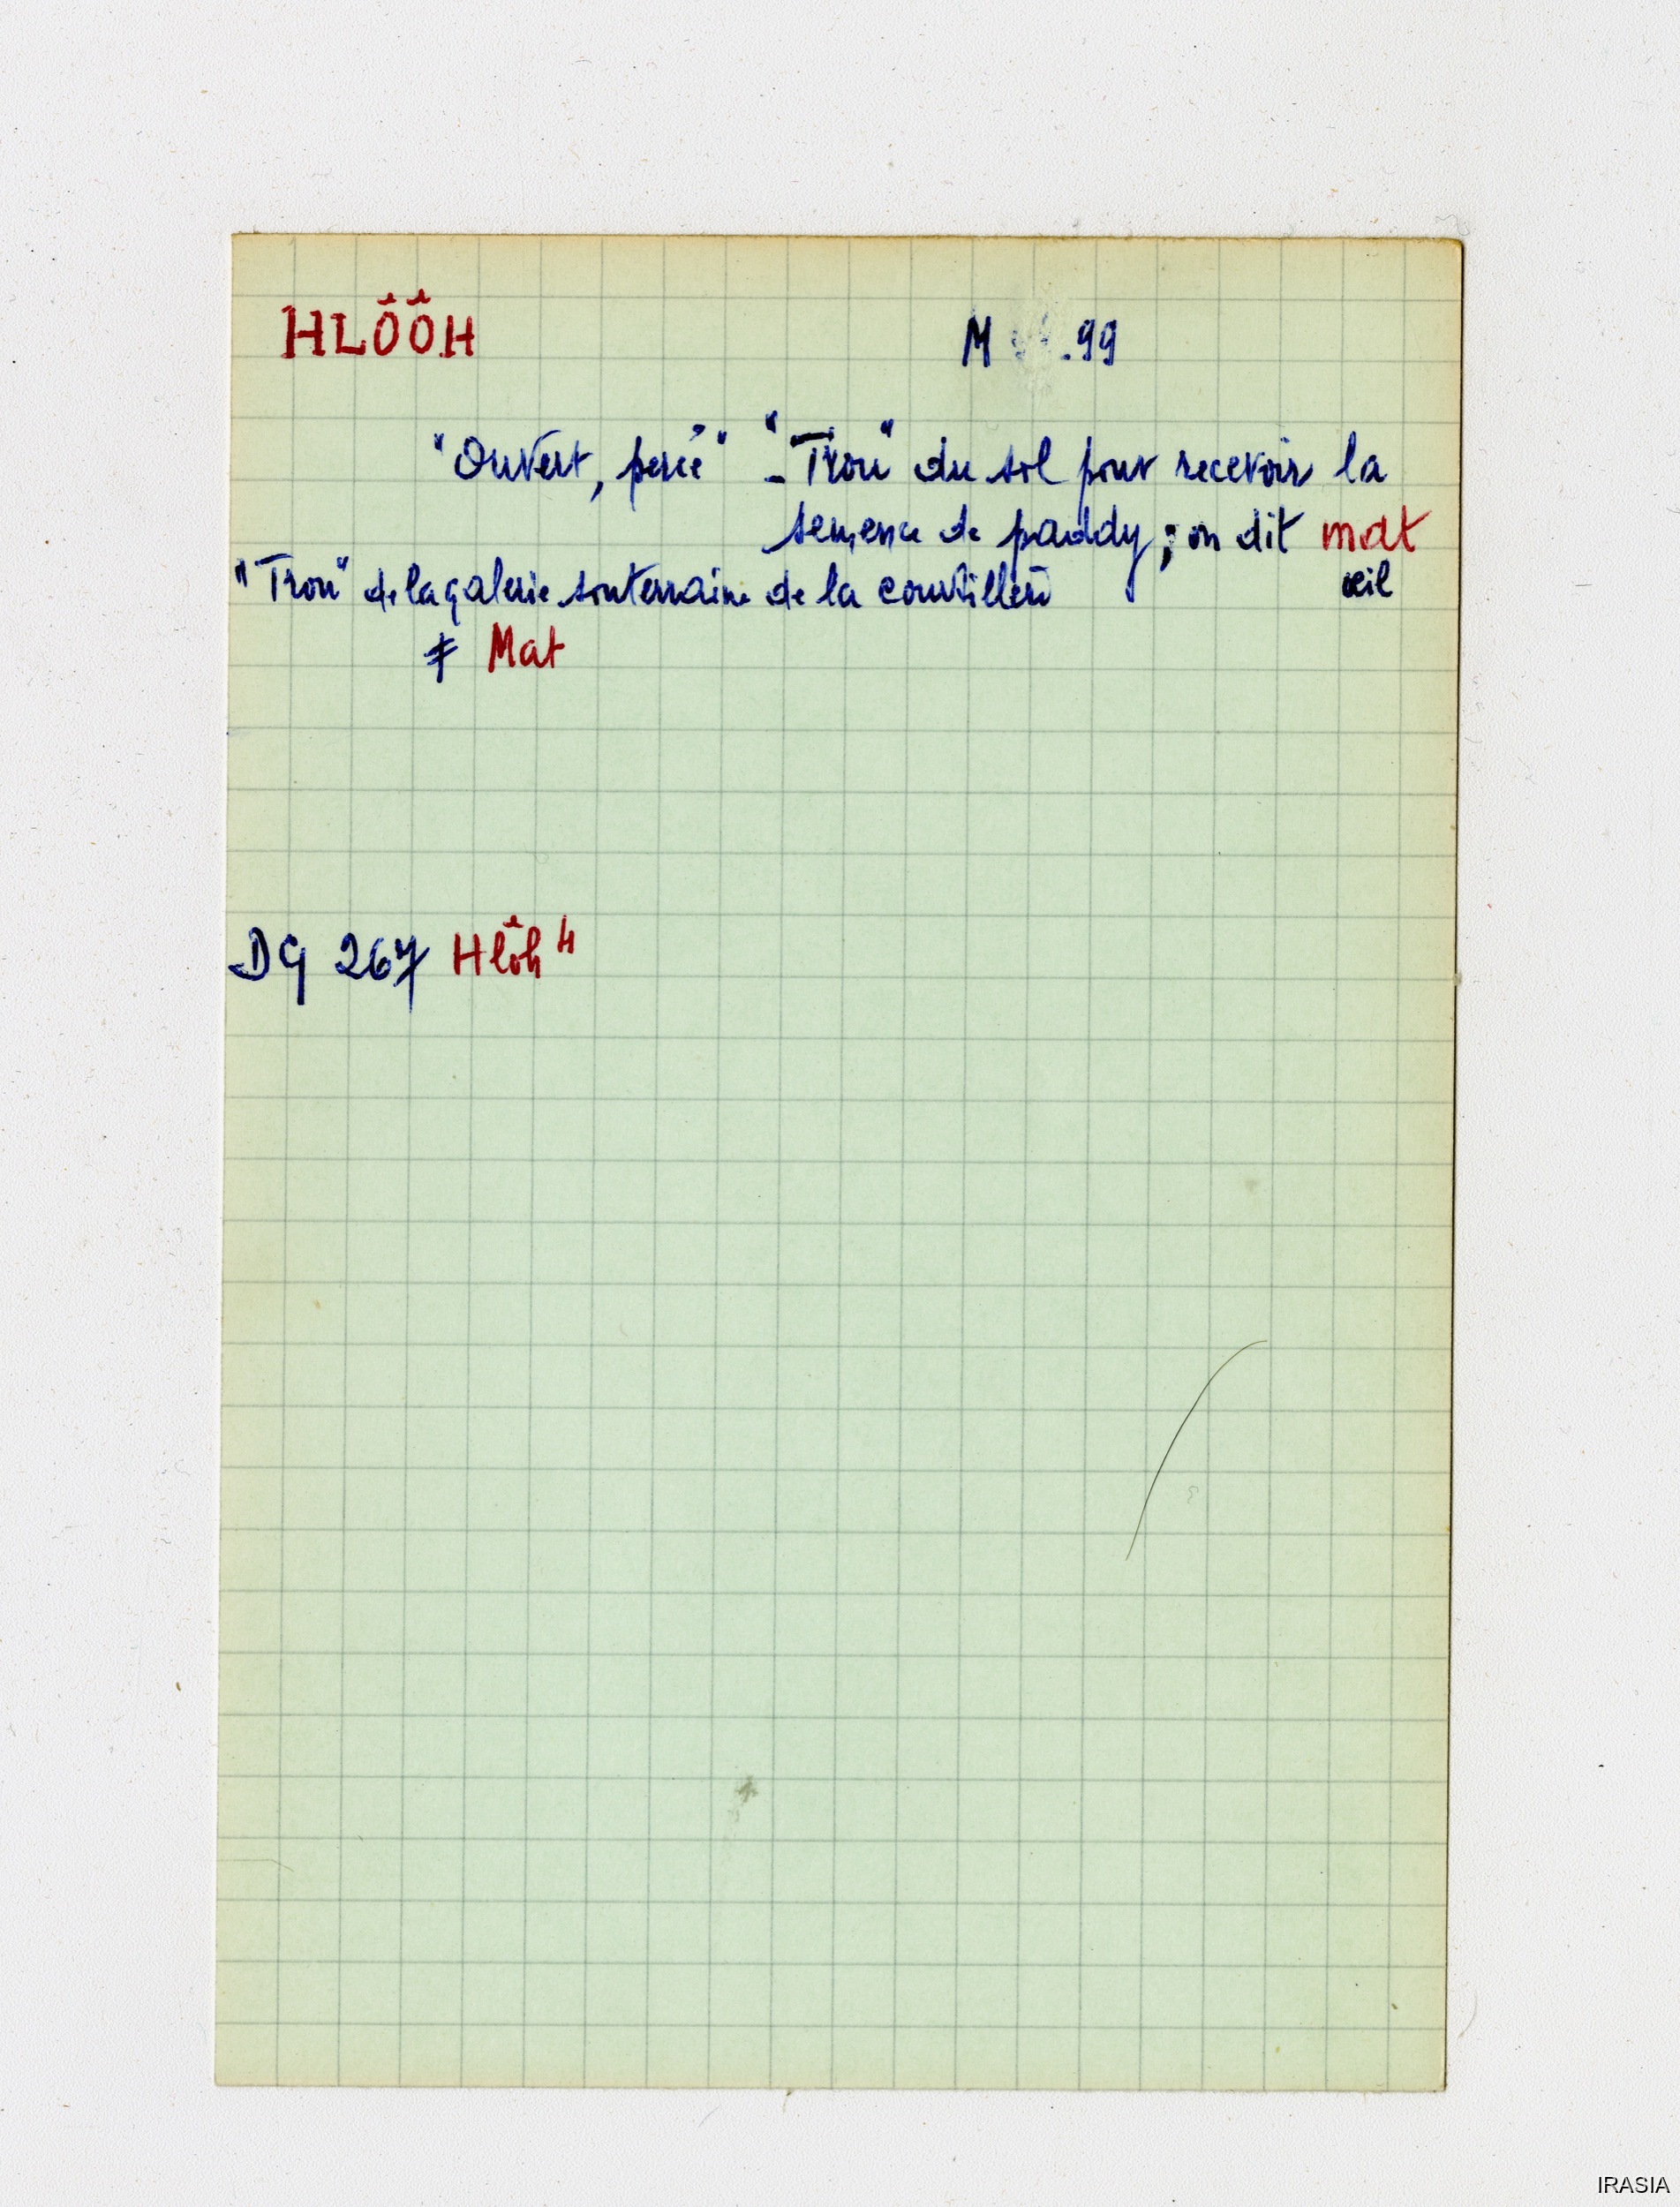 HLÔÔH M .99
"Ouvert, percé" - "Trou" du sol pour recevoir la
semence de paddy ; on dit mat
œil
"Trou" de la galerie souterraine de la courtillère
≠ Mat
DG 267 Hlôh
IRASIA